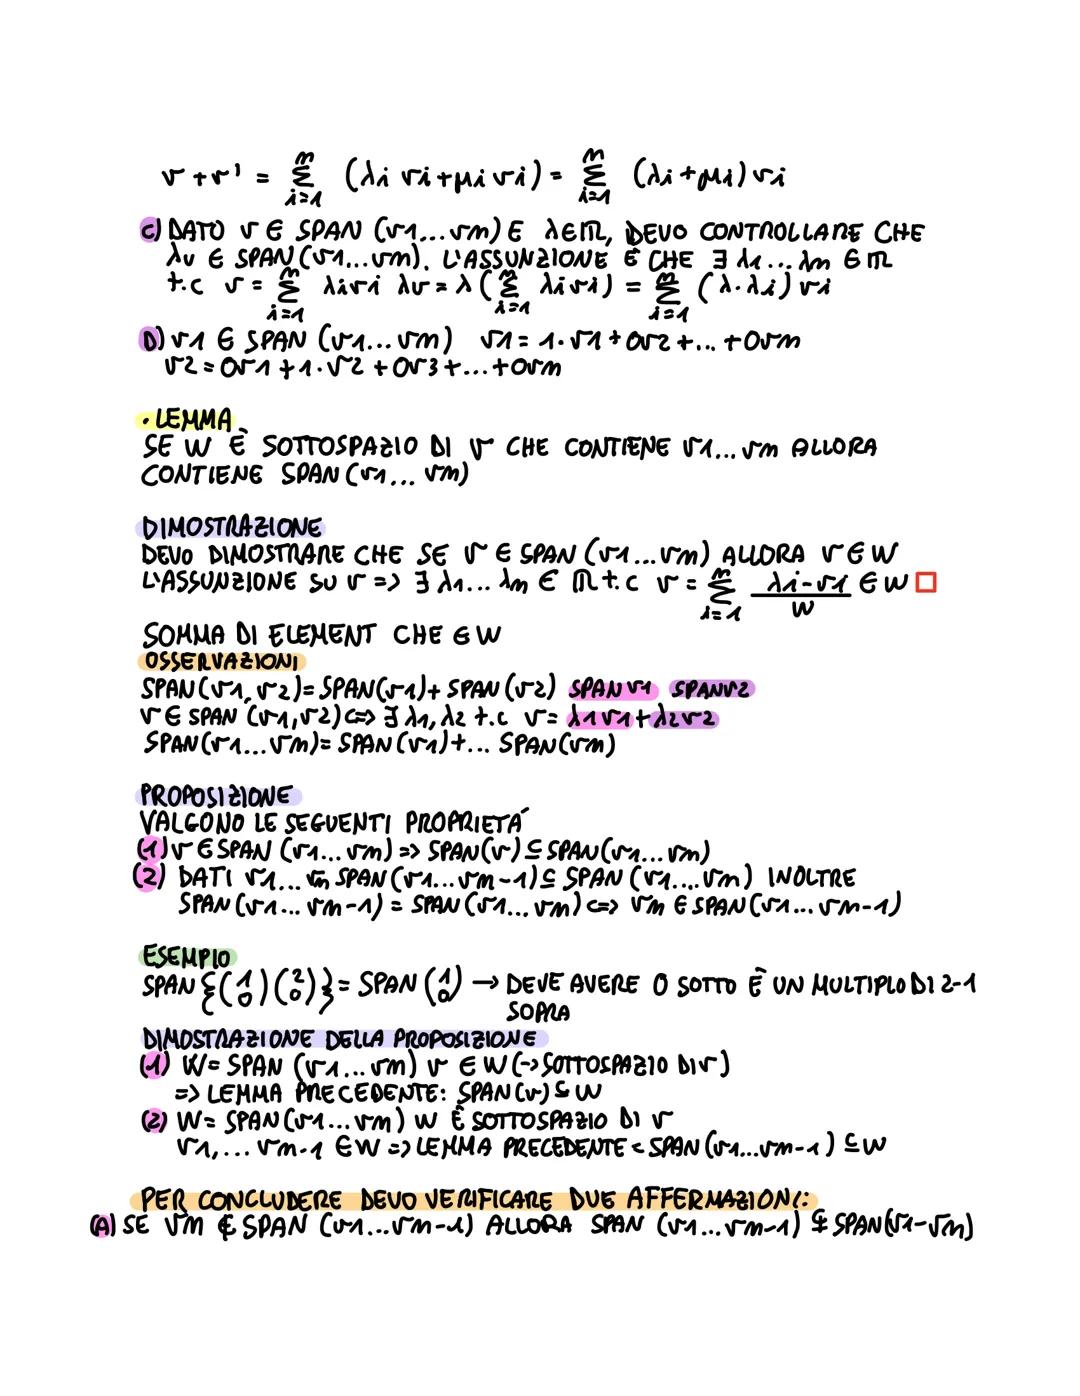 v + v' = Σ i=1 m (λi vi + μi vi) = Σ i=1 m (λi + μi) vi
C) DATO v ∈ SPAN (v1...vm) E λ∈ℝ, DEVO CONTROLLARE CHE
λv ∈ SPAN (v1...vm). L'ASSUNZIONE È CHE ∃ λ1...λm ∈ ℝ
t.c v = Σ i=1 m λivi λv = λ (Σ i=1 m λivi) = Σ i=1 m (λ·λi) vi
D) v1 ∈ SPAN (v1...vm) v1 = 1·v1 + 0v2 +... + 0vm
v2 = 0v1 + 1·v2 + 0v3 +...+ 0vm
• LEMMA
SE W È SOTTOSPAZIO DI V CHE CONTIENE v1...vm ALLORA
CONTIENE SPAN (v1... vm)
DIMOSTRAZIONE
DEVO DIMOSTRARE CHE SE v ∈ SPAN (v1...vm) ALLORA v ∈ W
L'ASSUNZIONE SU v => ∃ λ1... λm ∈ ℝ t.c v = Σ i=1 m λi-v1 ∈ W □
W
SOMMA DI ELEMENT CHE ∈ W
OSSERVAZIONI
SPAN (v1, v2) = SPAN(v1) + SPAN (v2) SPAN v1 SPAN v2
v ∈ SPAN (v1, v2) <=> ∃ λ1, λ2 t.c v = λ1v1 + λ2v2
SPAN (v1...vm) = SPAN (v1) +... SPAN (vm)
PROPOSIZIONE
VALGONO LE SEGUENTI PROPRIETÁ
(1) v ∈ SPAN (v1...vm) => SPAN(v) ⊆ SPAN (v1...vm)
(2) DATI v1... vm SPAN (v1...vm-1) ⊆ SPAN (v1....vm) INOLTRE
SPAN (v1... vm-1) = SPAN (v1...vm) <=> vm ∈ SPAN (v1...vm-1)
ESEMPIO
SPAN {(1 0)(2 0)} = SPAN (1 0) → DEVE AVERE 0 SOTTO È UN MULTIPLO DI 2-1
SOPRA
DIMOSTRAZIONE DELLA PROPOSIZIONE
(1) W = SPAN (v1...vm) v ∈ W (-> SOTTOSPAZIO DI V)
=> LEMMA PRECEDENTE: SPAN (v) ⊆ W
(2) W = SPAN (v1...vm) W È SOTTOSPAZIO DI V
v1,... vm-1 ∈ W => LEMMA PRECEDENTE < SPAN (v1...vm-1) ⊆ W
PER CONCLUDERE DEVO VERIFICARE DUE AFFERMAZIONI:
(A) SE vm ∉ SPAN (v1...vm-1) ALLORA SPAN (v1...vm-1) ⊊ SPAN (v1-vm)